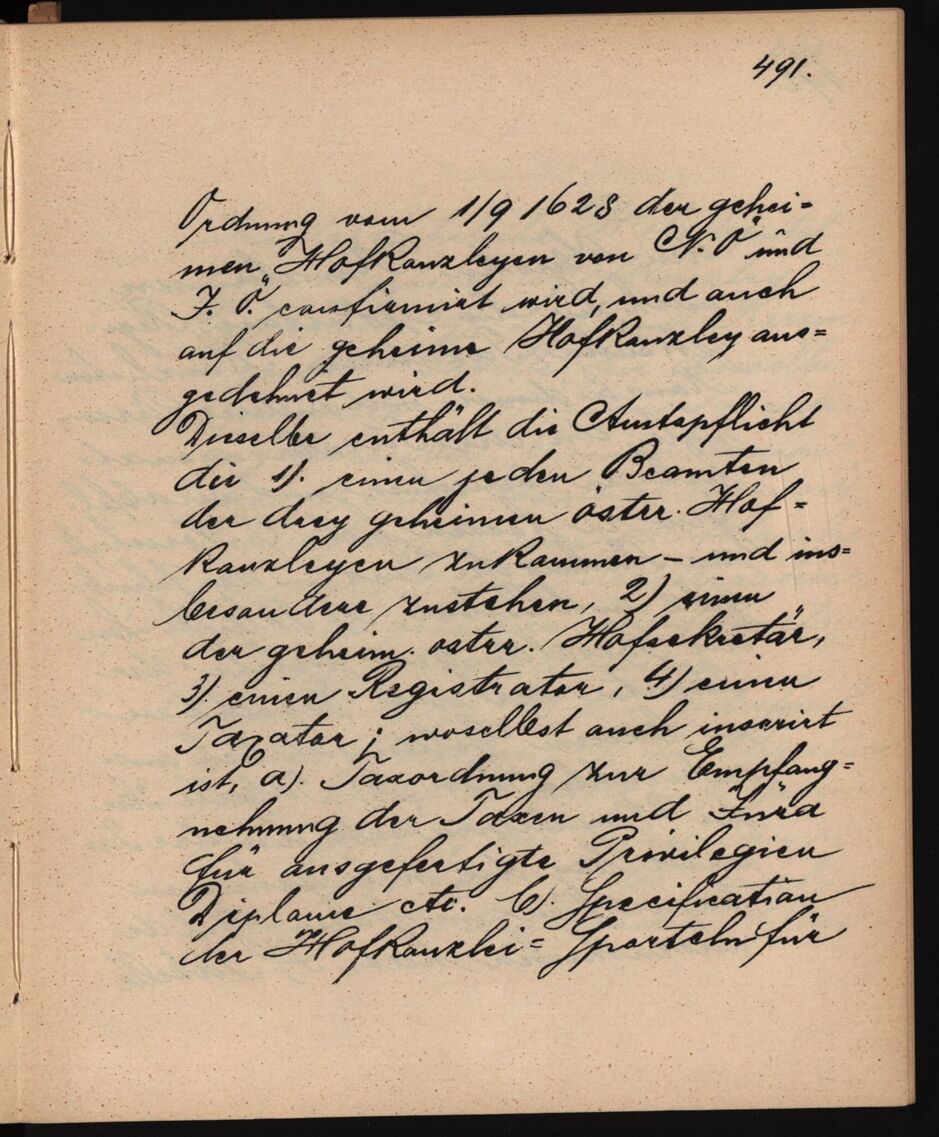 491.
Ordnung vom 1/9 1628 der gehei=
men „Hofkanzleyen von N. Ö" und
I. Ö. confirmirt wird, und auch
auf die geheime Hofkanzley aus=
gedehnet wird.
Dieselbe enthält die Amtspflicht
die 1). einen jeden Beamten
der drey geheimen österr. Hof=
kanzleyen zukommen – und ins=
besondere zustehen, 2) einen
der geheim. österr. Hofsekretär,
3). einen Registrator, 4) einen
Taxator; woselbst auch inserirt
ist, a). Taxordnung zur Empfang=
nehmung der Taxen und Jura
für ausgefertigte Privilegien
Diplome etc. b). Specification
der Hofkanzlei= Sporteln für